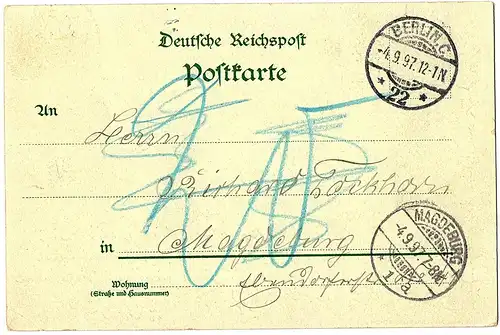 Deutsche Reichspost
Postkarte
BERLIN.C.
-4.9.97.12-1N.
* 22 *
An
Herrn
Richard
in Magdeburg
MAGDEBURG
-4.9.97.7-8N.
* 1 a
Wohnung
(Straße und Hausnummer)